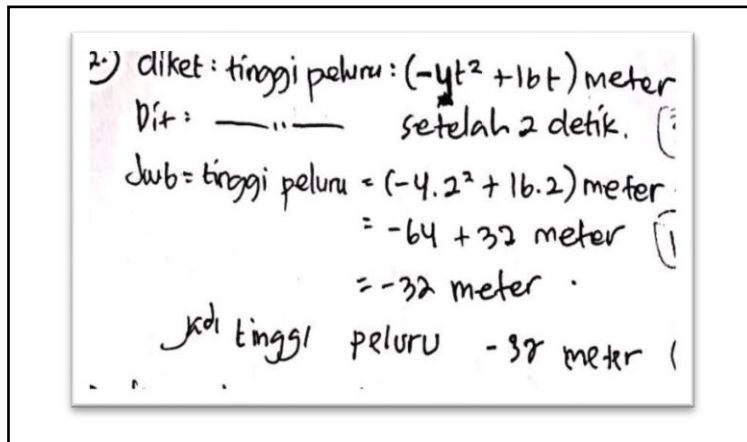 2.) diket : tinggi peluru : (-4t² + 16t) meter
Dit : —— " —— setelah 2 detik.
Jwb = tinggi peluru = (-4.2² + 16.2) meter.
= -64 + 32 meter
= -32 meter.
jadi tinggi peluru -32 meter